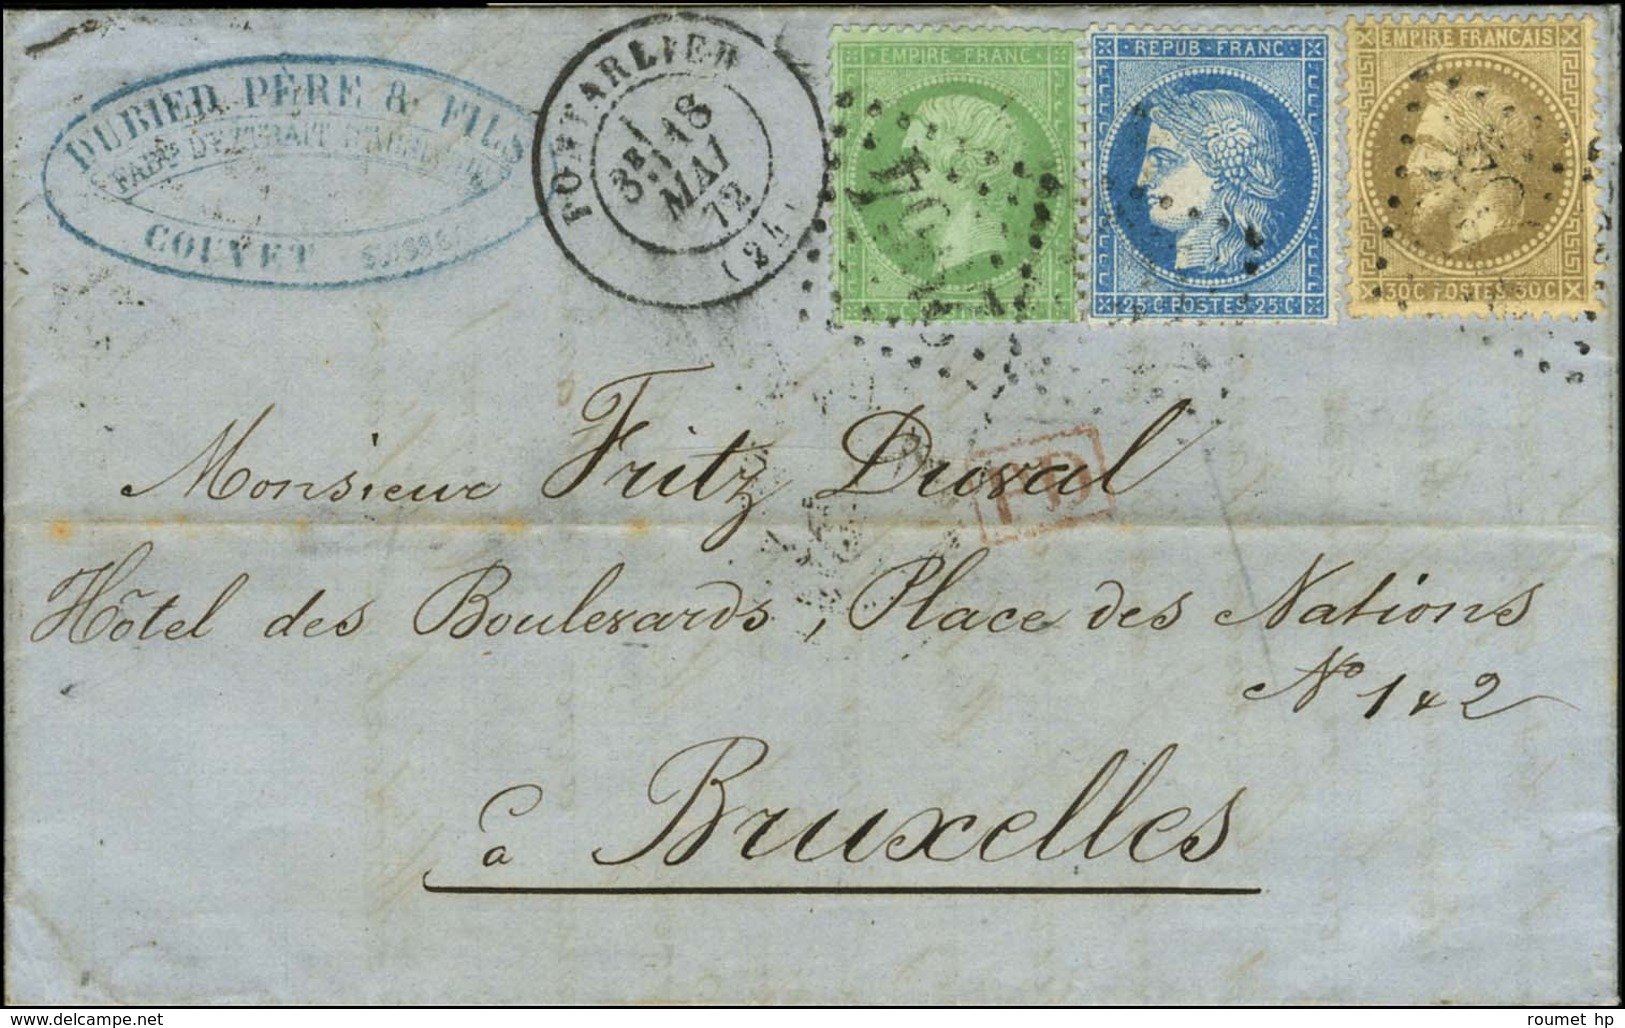 DUBIED PÈRE & FILS
COUVET SUISSE
PONTARLIER
3E/
18
MAI
72
(24)
EMPIRE FRANC
REPUB FRANC
25 C POSTES 25 C
EMPIRE FRANÇAIS
30C POSTES 30C
PD
Monsieur Fritz Duval
Hôtel des Boulevards, Place des Nations
No 1 & 2
à Bruxelles
www.delcampe.net
roumet hp